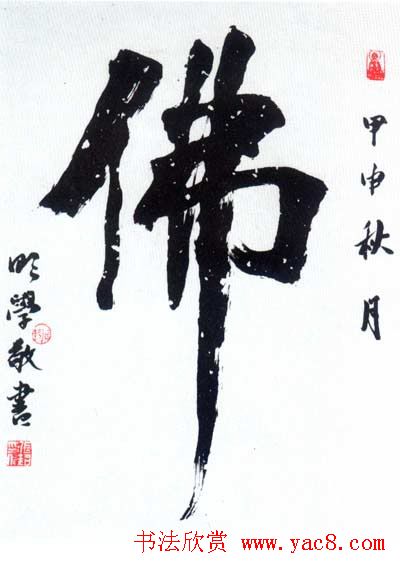 佛
甲申秋月
明學敬書
书法欣赏 www.yac8.com